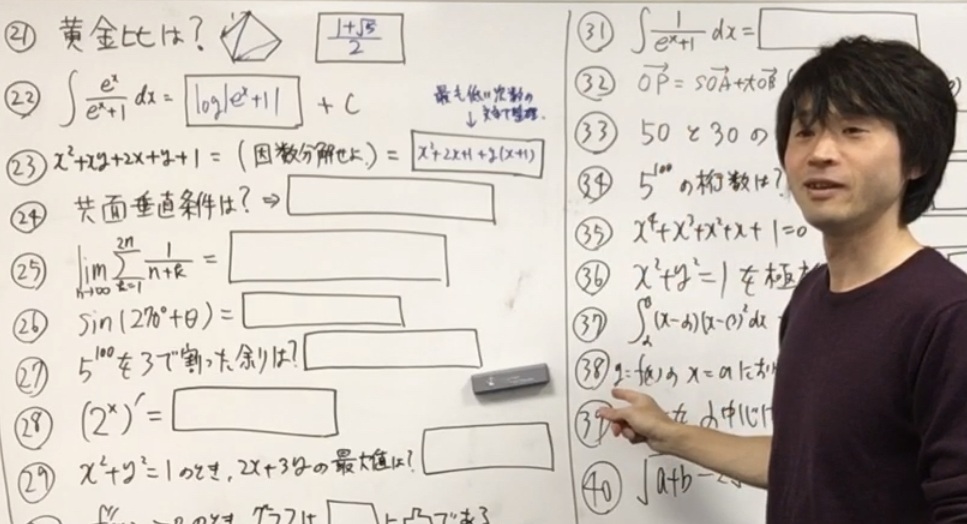 ㉑ 黄金比は? (1+√5)/2
㉒ ∫ e^x/(e^x+1) dx = log|e^x+1| + C
最も低い次数の
文字で整理.
㉓ x²+xy+2x+y+1 = (因数分解せよ.) = x²+2x+1+y(x+1)
㉔ 共面垂直条件は? ⇒
㉕ lim n→∞ Σ k=1 2n 1/(n+k) =
㉖ sin(270°+θ) =
㉗ 5^100を3で割った余りは?
㉘ (2^x)′ =
㉙ x²+y²=1のとき, 2x+3yの最大値は?
のとき, グラフは に凸である
㉛ ∫ 1/(e^x+1) dx =
㉜ OP→ = sOA→+tOB→
㉝ 50と30の
㉞ 5^100の桁数は?
㉟ x⁴+x³+x²+x+1=0
㊱ x²+y²=1を極
㊲ ∫α β (x-α)(x-β)²dx
㊳ y=f(x)のx=aにおけ
㊴
㊵ √a+b-2√